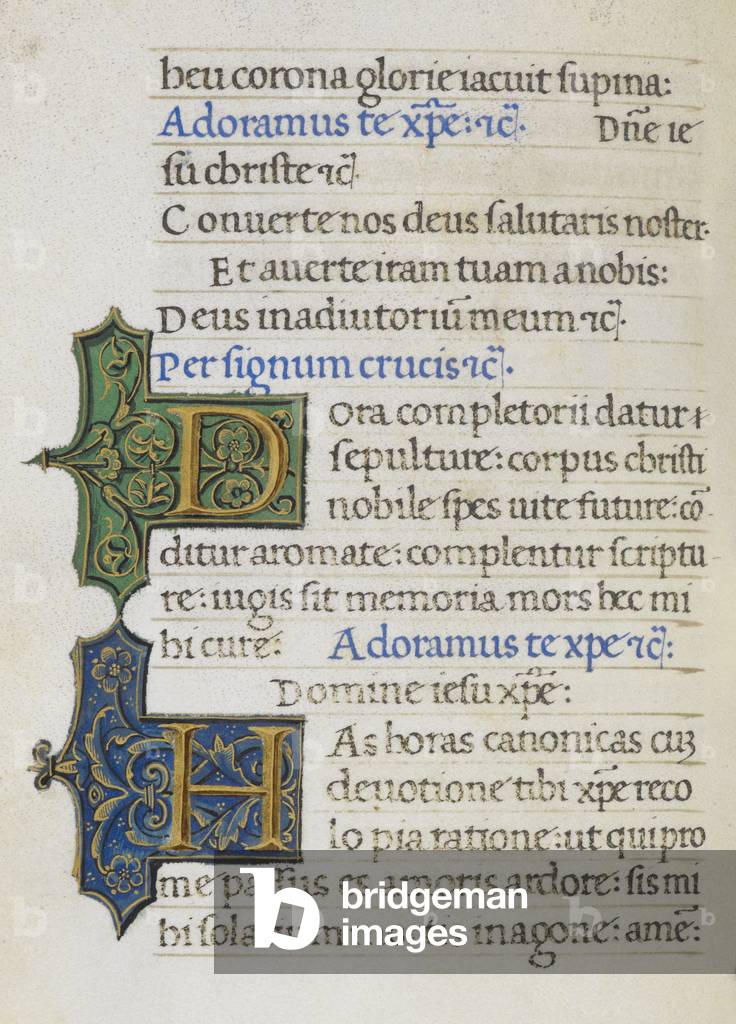 heu corona glorie iacuit supina:
Adoramus te xp̄e: ⁊c̄. Dn̄e ie
su christe ⁊c̄.
Conuerte nos deus salutaris noster.
Et auerte iram tuam a nobis:
Deus in adiutoriū meum ⁊c̄.
Per signum crucis ⁊c̄.
D ora completorii datur
sepulture: corpus christi
nobile spes uite future: cō
ditur aromate: complentur scriptu
re: iugis sit memoria mors hec mi
hi cure: Adoramus te xpe ⁊c̄:
Domine iesu xp̄e:
H As horas canonicas cuȝ
deuotione tibi xp̄e reco
lo pia ratione: ut qui pro
me amoris ardore: sis mi
hi in agone: amē:
b bridgeman images